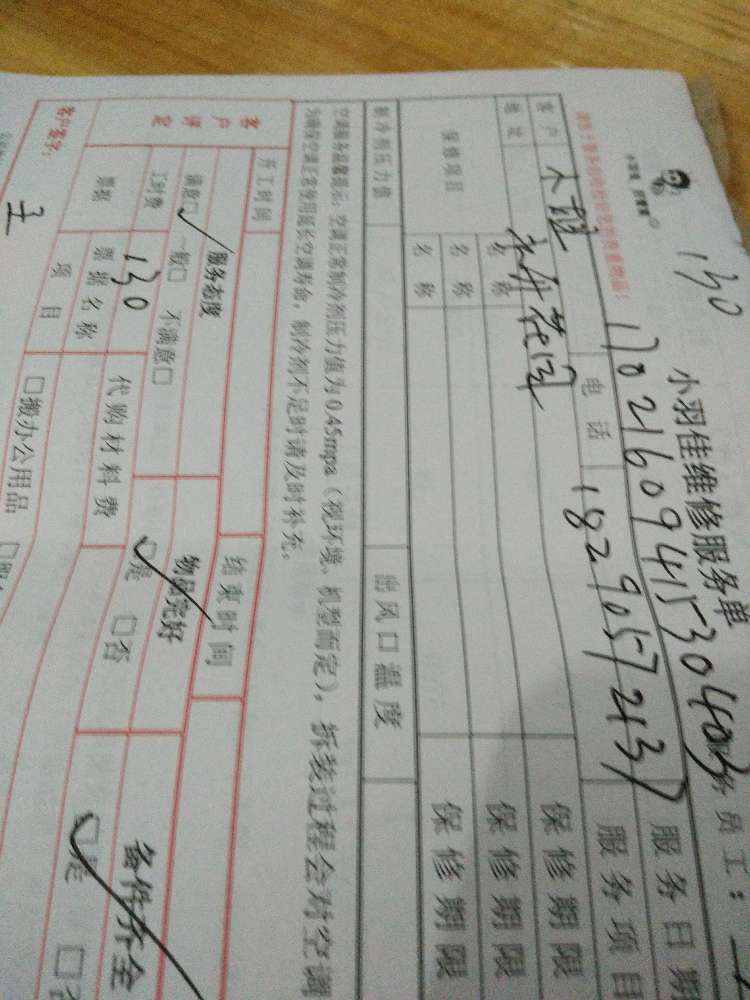 130
小羽佳维修服务单
170216094153040
务员工：
客户
电话
18290572137
服务日期
地址
服务项目
保修项目
名称
保修期限
名称
保修期限
名称
保修期限
制冷剂压力值
出风口温度
空调服务温馨提示：空调正常制冷剂压力值为0.45mpa（视环境、机型而定），拆装过程会对空调
为确保空调正常使用延长空调寿命，制冷剂不足时请及时补充。
开工时间
结束时间
客户评定
服务态度
物品完好
备件齐全
满意□ 一般□ 不满意□
□是 □否
□是 □否
工时费
130
代购材料费
票据
票据名称
项目
□搬办公用品
客户签字：
王